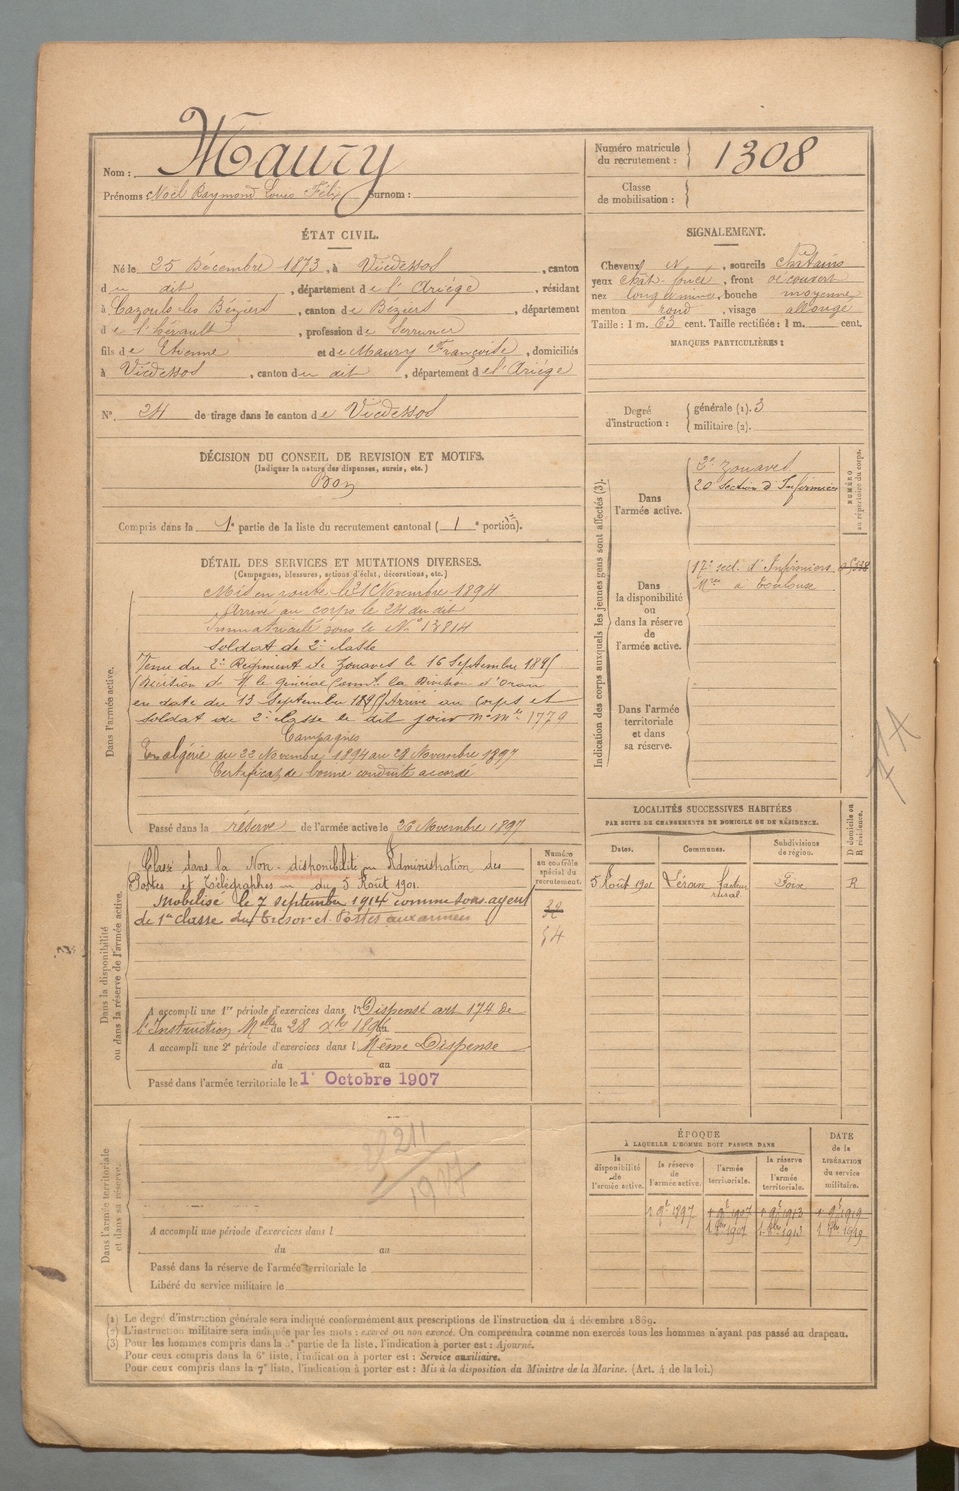 Nom : Maury
Prénoms : Noël Raymond Louis Félix Surnom :
Numéro matricule du recrutement : 1308
Classe de mobilisation :
ÉTAT CIVIL.
Né le 25 Décembre 1873, à Vicdessos, canton
du dit, département de l'Ariège, résidant
à Cazouls les Béziers, canton de Béziers, département
de l'hérault, profession de serrurier
fils de Etienne et de Maury Françoise, domiciliés
à Vicdessos, canton du dit, département de l'Ariège
N° 24 de tirage dans le canton de Vicdessos
DÉCISION DU CONSEIL DE REVISION ET MOTIFS.
(Indiquer la nature des dispenses, sursis, etc.)
Bon
Compris dans la 1e partie de la liste du recrutement cantonal (1e portion).
SIGNALEMENT.
Cheveux N, sourcils châtains
yeux chat. foncé, front découvert
nez long, bouche moyenne
menton rond, visage allongé
Taille : 1 m. 63 cent. Taille rectifiée : 1 m. cent.
MARQUES PARTICULIÈRES :
Degré d'instruction : générale (1). 3
militaire (2).
Indication des corps auxquels les jeunes gens sont affectés (3).
NUMÉRO au répertoire du corps.
Dans l'armée active.
2e Zouaves
20 section d'Infirmiers
Dans la disponibilité ou dans la réserve de l'armée active.
17e sect. d'Infirmiers
Mres à Toulouse
Dans l'armée territoriale et dans sa réserve.
DÉTAIL DES SERVICES ET MUTATIONS DIVERSES.
(Campagnes, blessures, actions d'éclat, décorations, etc.)
Dans l'armée active.
Mis en route le 21 Novembre 1894
Arrivé au corps le 24 du dit
Immatriculé sous le N° 13814
soldat de 2e classe
Venu du 2e Régiment de Zouaves le 16 Septembre 1895
(Décision de M. le Général Comt. la Division d'Oran
en date du 13 Septembre 1895) Arrivé au corps et
soldat de 2e classe le dit jour No Mle 1779
Campagnes
En algérie du 22 Novembre 1894 au 28 Novembre 1897
Certificat de bonne conduite accordé
Passé dans la réserve de l'armée active le 26 Novembre 1897
Dans la disponibilité ou dans la réserve de l'armée active.
Numéro au contrôle spécial du recrutement.
Classé dans la Non-disponibilité Administration des
Postes et Télégraphes du 5 Août 1901.
Mobilisé le 7 septembre 1914 comme sous-agent
de 1re classe du Trésor et Postes aux armées
32
54
A accompli une 1re période d'exercices dans l Dispensé art 174 de
l'Instruction Melle du 28 Xbre 1895
A accompli une 2e période d'exercices dans l Même Dispense
du au
Passé dans l'armée territoriale le 1er Octobre 1907
LOCALITÉS SUCCESSIVES HABITÉES
PAR SUITE DE CHANGEMENTS DE DOMICILE OU DE RÉSIDENCE.
Dates. Communes. Subdivisions de région. D domicile ou R résidence.
5 Août 1901 facteur rural Foix R
Dans l'armée territoriale et dans sa réserve.
A accompli une période d'exercices dans l
du au
Passé dans la réserve de l'armée territoriale le
Libéré du service militaire le
ÉPOQUE
À LAQUELLE L'HOMME DOIT PASSER DANS
la disponibilité de l'armée active.
la réserve de l'armée active.
l'armée territoriale.
la réserve de l'armée territoriale.
DATE de la LIBÉRATION du service militaire.
1 9e 1897 1 9e 1907 1 9e 1913 1 9e 1919
1 8bre 1907 1 8bre 1913 1 8bre 1919
(1) Le degré d'instruction générale sera indiqué conformément aux prescriptions de l'instruction du 4 décembre 1889.
(2) L'instruction militaire sera indiquée par les mots : exercé ou non exercé. On comprendra comme non exercés tous les hommes n'ayant pas passé au drapeau.
(3) Pour les hommes compris dans la 5e partie de la liste, l'indication à porter est : Ajourné.
Pour ceux compris dans la 6e liste, l'indication à porter est : Service auxiliaire.
Pour ceux compris dans la 7e liste, l'indication à porter est : Mis à la disposition du Ministre de la Marine. (Art. 4 de la loi.)